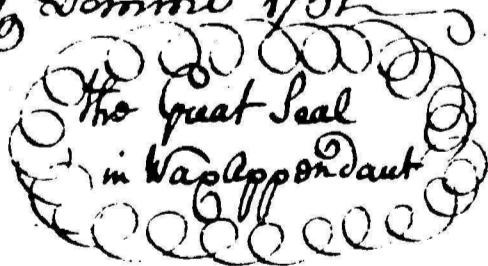 Domini 1731
The Great Seal
in Wax Appendant